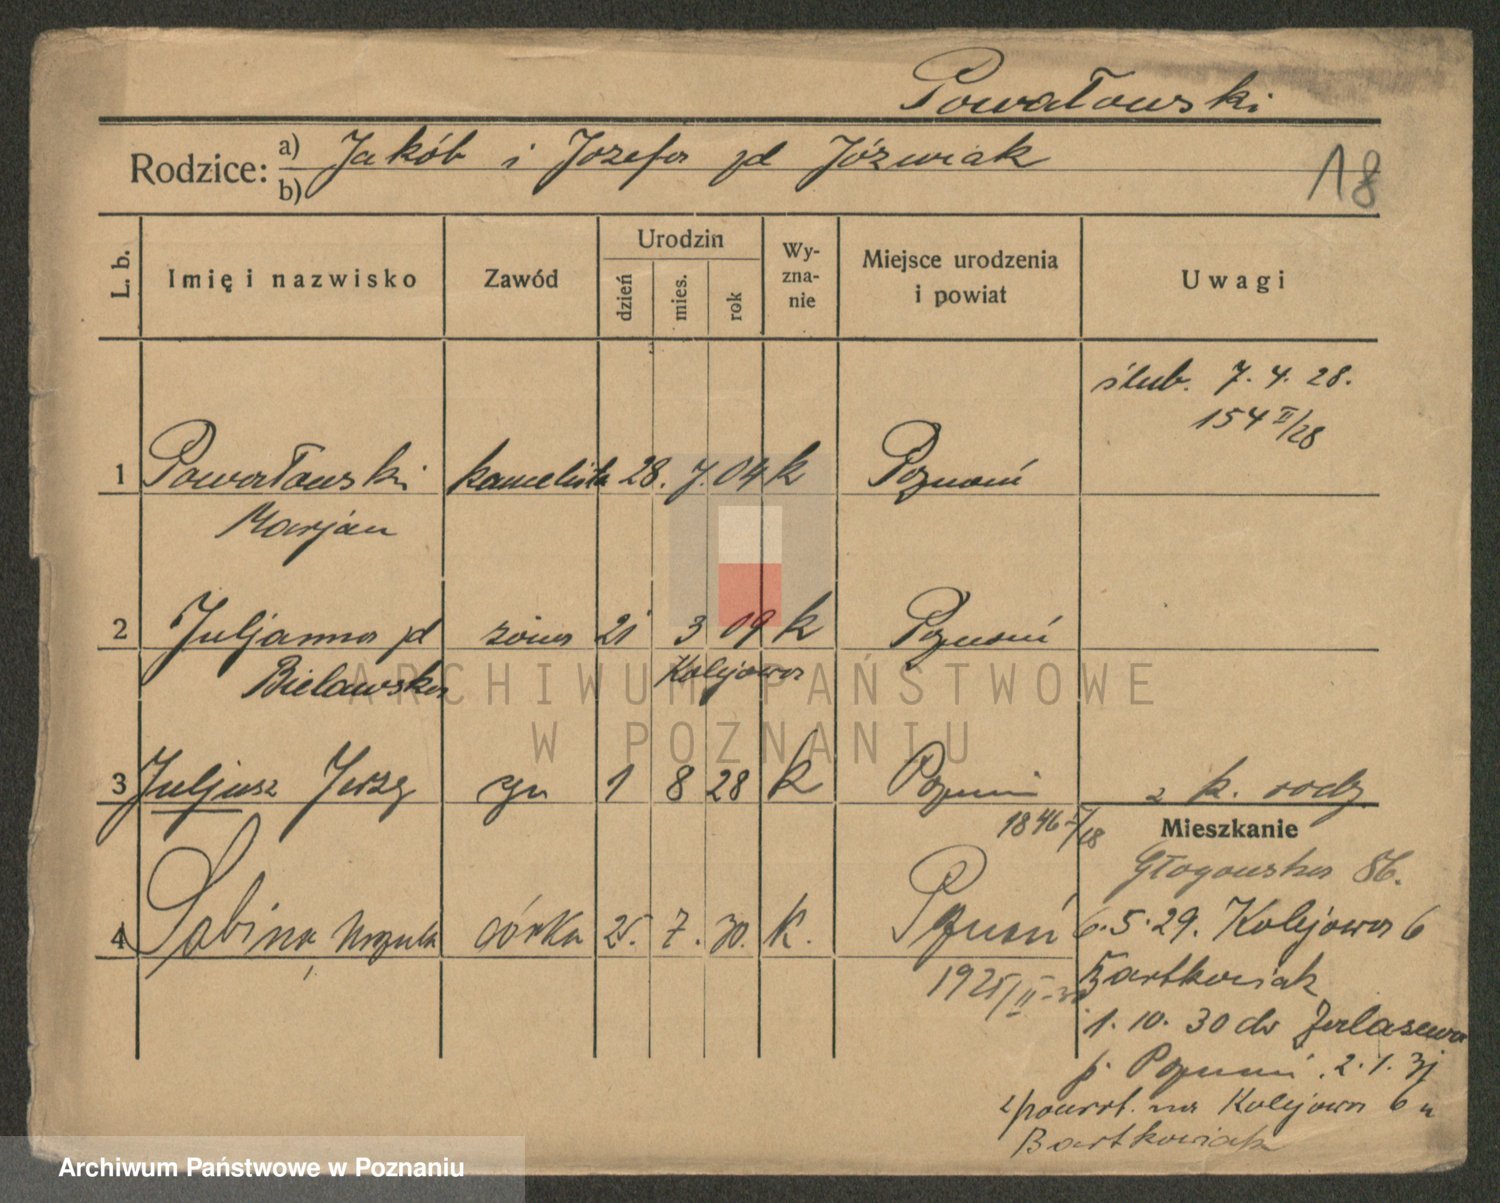 Powałowski
Rodzice: a) Jakób i Józefa zd Józwiak
b)
18
L. b. Imię i nazwisko Zawód Urodzin Wy-zna-nie Miejsce urodzenia i powiat Uwagi
dzień mies. rok
ślub. 7. 4. 28.
154 II/28
1 Powałowski kancelista 28. 7. 04 k Poznań
Marjan
2 Juljanna zd żona 21 3 09 k Poznań
Bielawska Kolejowa
3 Juljusz Jerzy syn 1 8 28 k Poznań k. rodz
1846 I/18 Mieszkanie
Głogowska 86.
4 Sabina, Urszula córka 25. 7. 30. k. Poznań 6.5.29. Kolejowa 6
1925/II-30 Bartkowiak
1. 10. 30 do
p. Poznań. 2. 1. 31
powrót. na Kolejowa 6 u
Bartkowiak
ARCHIWUM PAŃSTWOWE
W POZNANIU
Archiwum Państwowe w Poznaniu